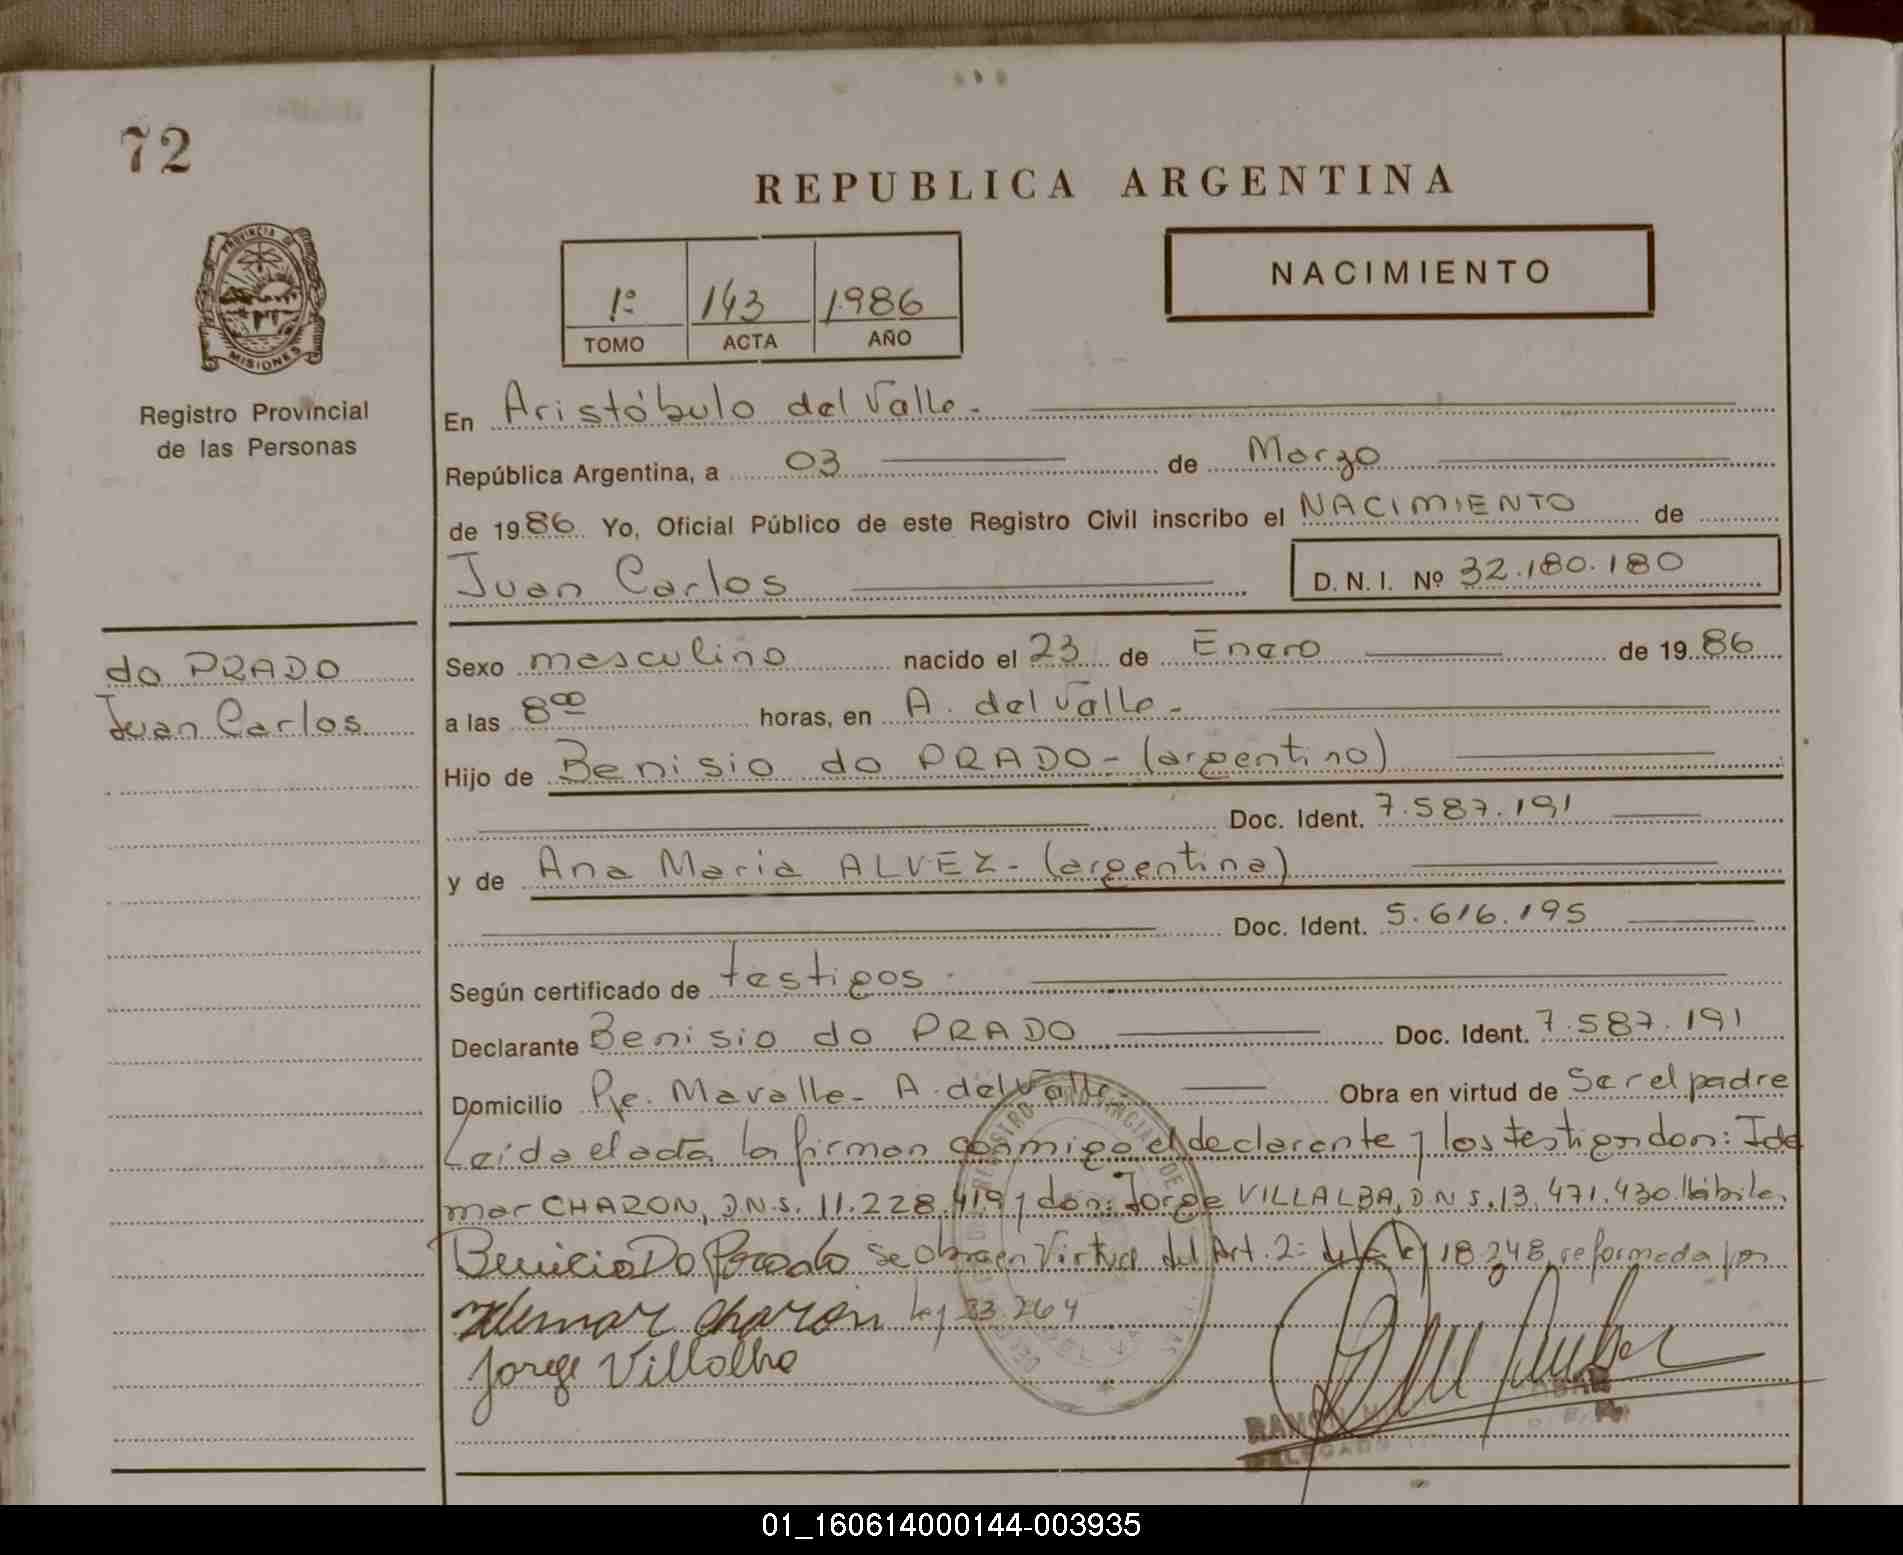 72
REPUBLICA ARGENTINA
PROVINCIA DE
MISIONES
Registro Provincial
de las Personas
1º 143 1986
TOMO ACTA AÑO
NACIMIENTO
En Aristóbulo del Valle.-
República Argentina, a 03 de Marzo
de 1986 Yo, Oficial Público de este Registro Civil inscribo el NACIMIENTO de
Juan Carlos D. N. I. Nº 32.180.180
do PRADO
Juan Carlos
Sexo masculino nacido el 23 de Enero de 1986
a las 8⁰⁰ horas, en A. del Valle.-
Hijo de Benisio do PRADO - (argentino)
Doc. Ident. 7.587.191
y de Ana Maria ALVEZ - (argentina)
Doc. Ident. 5.616.195
Según certificado de testigos.
Declarante Benisio do PRADO Doc. Ident. 7.587.191
Domicilio Pje. Mavalle - A. del Valle. Obra en virtud de Ser el padre
Leida el acta la firman conmigo el declarante y los testigos don: Ide
mar CHARON, D.N.I. 11.228.419 y don: Jorge VILLALBA, D.N.I. 13.471.430. Hábiles.
Benicio Do Prado Se obra en Virtud del Art. 2º de la ley 18.248, reformada por
Idemar Charon Ley 23.264
Jorge Villalba
RAMON
DELEGADO
01_160614000144-003935